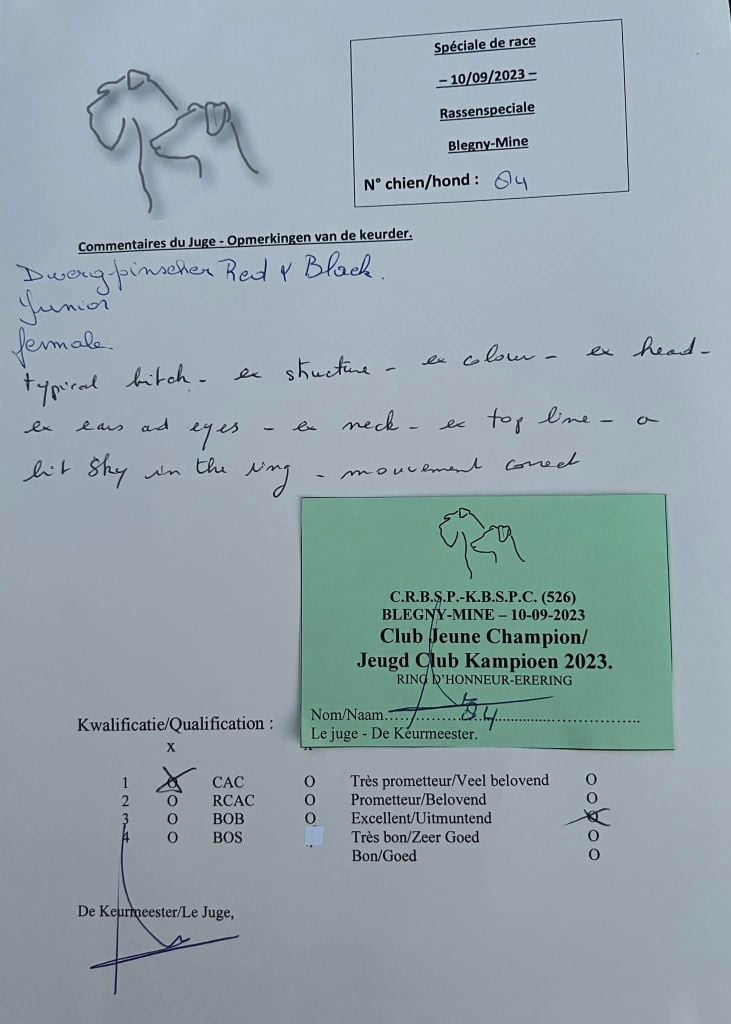 Spéciale de race
– 10/09/2023 –
Rassenspeciale
Blegny-Mine
N° chien/hond : 84
Commentaires du Juge - Opmerkingen van de keurder.
Dwerg-pinscher Red & Black.
Junior
female
typical bitch - ex structure - ex colour - ex head -
ex ears ad eyes - ex neck - ex top line - a
bit shy in the ring - mouvement correct
C.R.B.S.P.-K.B.S.P.C. (526)
BLEGNY-MINE – 10-09-2023
Club Jeune Champion/
Jeugd Club Kampioen 2023.
RING D'HONNEUR-ERERING
Nom/Naam.............84..............................
Le juge - De Keurmeester.
Kwalificatie/Qualification :
x
1 O CAC O Très prometteur/Veel belovend O
2 O RCAC O Prometteur/Belovend O
3 O BOB O Excellent/Uitmuntend O
4 O BOS Très bon/Zeer Goed O
Bon/Goed O
De Keurmeester/Le Juge,